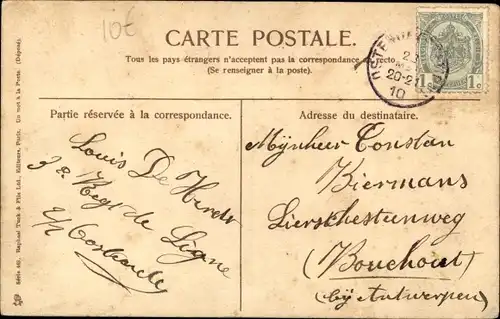 10€
CARTE POSTALE.
Tous les pays étrangers n'acceptent pas la correspondance au recto
(Se renseigner à la poste).
20-21
10
1c
1c
Partie réservée à la correspondance.
Adresse du destinataire.
Louis De
3e Regt de Ligne
Mijnheer Constan
Biermans
Lierschesteenweg
(Bouchout)
(bij Antwerpen)
Raphael Tuck & Fils Ltd., Editeurs, Paris. Un mot à la Poste. (Déposé).